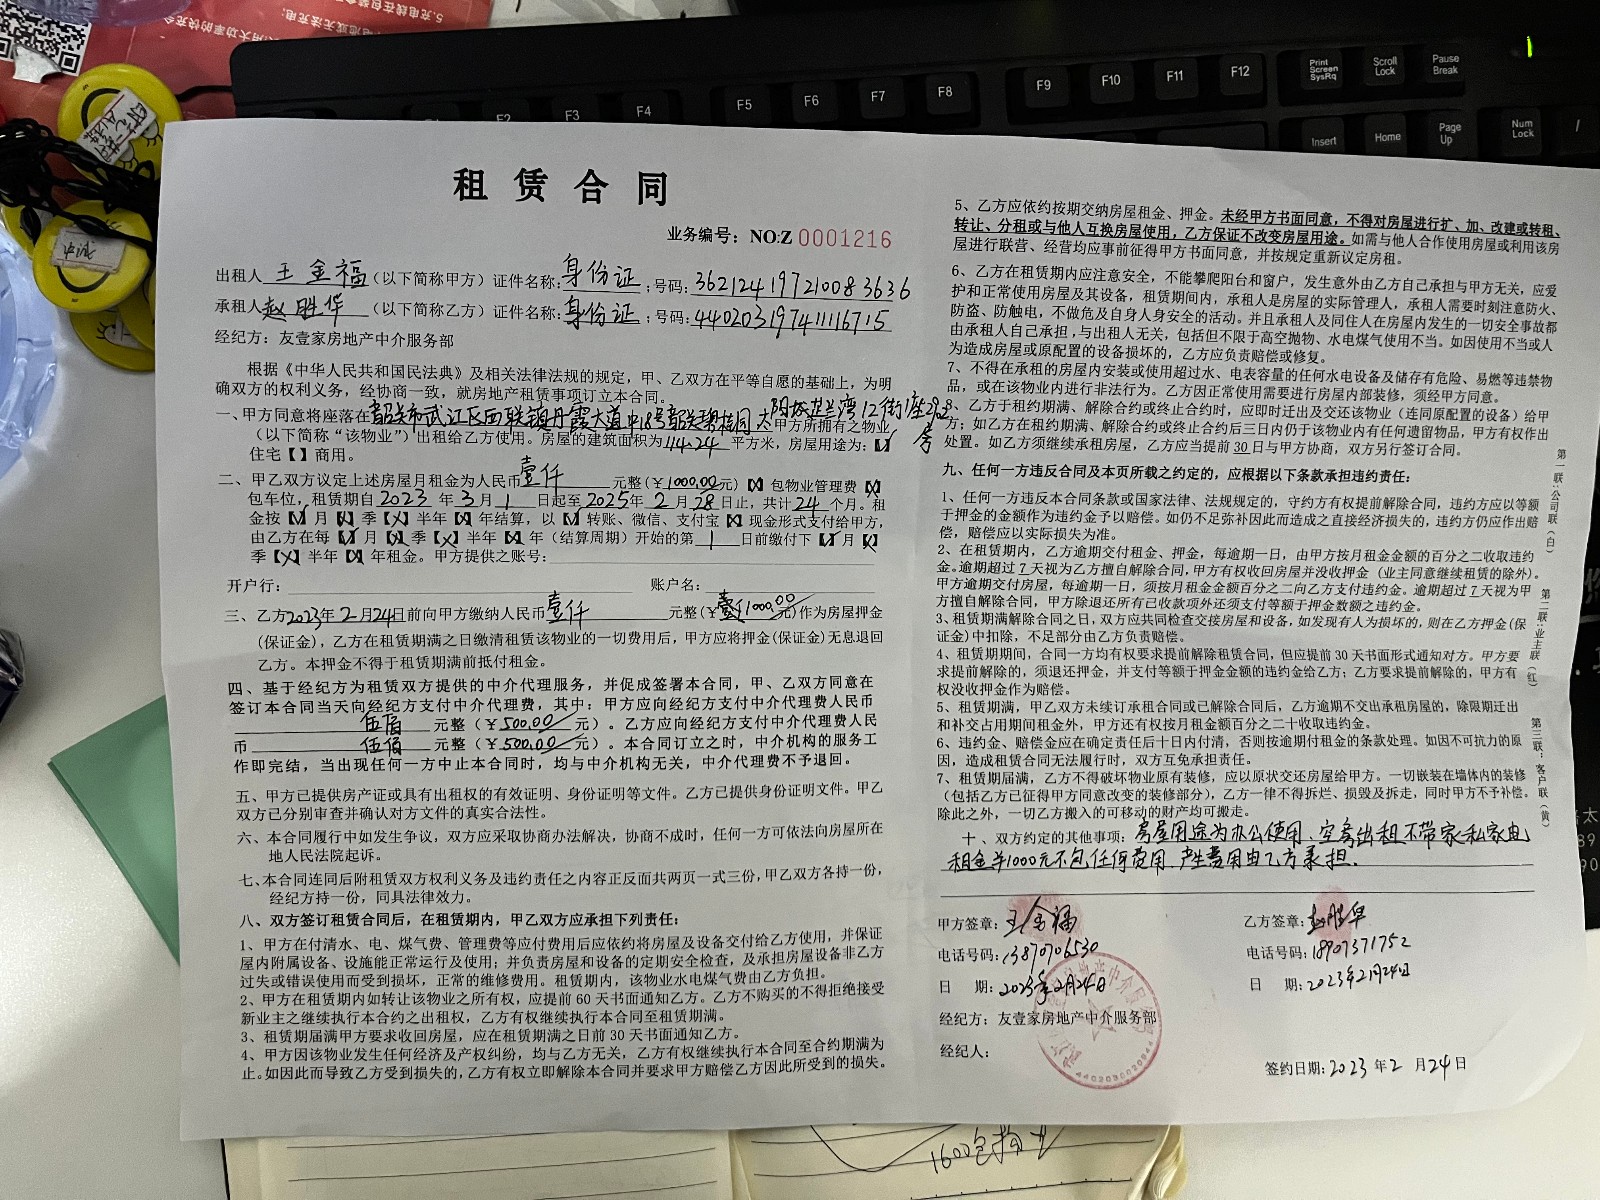 租 赁 合 同
业务编号：NO:Z 0001216
出租人 王金福（以下简称甲方）证件名称：身份证；号码：362124197210083636
承租人 赵胜华（以下简称乙方）证件名称：身份证；号码：440203197411116715
经纪方：友壹家房地产中介服务部
根据《中华人民共和国民法典》及相关法律法规的规定，甲、乙双方在平等自愿的基础上，为明
确双方的权利义务，经协商一致，就房地产租赁事项订立本合同。
一、甲方同意将座落在韶关市武江区西联镇丹霞大道中18号韶关碧桂园·太阳城芷兰湾12街1座202房 甲方所拥有之物业
（以下简称“该物业”）出租给乙方使用。房屋的建筑面积为 114.24 平方米，房屋用途为：【√】
住宅【 】商用。
二、甲乙双方议定上述房屋月租金为人民币壹仟 元整（￥1000.00元）【X】包物业管理费【X】
包车位，租赁期自 2023 年 3 月 1 日起至 2025 年 2 月 28 日止，共计 24 个月。租
金按【√】月【X】季【X】半年【X】年结算，以【√】转账、微信、支付宝【X】现金形式支付给甲方，
由乙方在每【√】月【X】季【X】半年【X】年（结算周期）开始的第 1 日前缴付下【√】月【X】
季【X】半年【X】年租金。甲方提供之账号：
开户行： 账户名：
三、乙方2023年2月24日前向甲方缴纳人民币壹仟 元整（￥1000.00元）作为房屋押金
（保证金），乙方在租赁期满之日缴清租赁该物业的一切费用后，甲方应将押金（保证金）无息退回
乙方。本押金不得于租赁期满前抵付租金。
四、基于经纪方为租赁双方提供的中介代理服务，并促成签署本合同，甲、乙双方同意在
签订本合同当天向经纪方支付中介代理费，其中：甲方应向经纪方支付中介代理费人民币
伍佰 元整（￥500.00元）。乙方应向经纪方支付中介代理费人民
币 伍佰 元整（￥500.00元）。本合同订立之时，中介机构的服务工
作即完结，当出现任何一方中止本合同时，均与中介机构无关，中介代理费不予退回。
五、甲方已提供房产证或具有出租权的有效证明、身份证明等文件。乙方已提供身份证明文件。甲乙
双方已分别审查并确认对方文件的真实合法性。
六、本合同履行中如发生争议，双方应采取协商办法解决，协商不成时，任何一方可依法向房屋所在
地人民法院起诉。
七、本合同连同后附租赁双方权利义务及违约责任之内容正反面共两页一式三份，甲乙双方各持一份，
经纪方持一份，同具法律效力。
八、双方签订租赁合同后，在租赁期内，甲乙双方应承担下列责任：
1、甲方在付清水、电、煤气费、管理费等应付费用后应依约将房屋及设备交付给乙方使用，并保证
屋内附属设备、设施能正常运行及使用；并负责房屋和设备的定期安全检查，及承担房屋设备非乙方
过失或错误使用而受到损坏，正常的维修费用。租赁期内，该物业水电煤气费由乙方负担。
2、甲方在租赁期内如转让该物业之所有权，应提前 60 天书面通知乙方。乙方不购买的不得拒绝接受
新业主之继续执行本合约之出租权，乙方有权继续执行本合同至租赁期满。
3、租赁期届满甲方要求收回房屋，应在租赁期满之日前 30 天书面通知乙方。
4、甲方因该物业发生任何经济及产权纠纷，均与乙方无关，乙方有权继续执行本合同至合约期满为
止。如因此而导致乙方受到损失的，乙方有权立即解除本合同并要求甲方赔偿乙方因此所受到的损失。
5、乙方应依约按期交纳房屋租金、押金。未经甲方书面同意，不得对房屋进行扩、加、改建或转租、
转让、分租或与他人互换房屋使用，乙方保证不改变房屋用途。如需与他人合作使用房屋或利用该房
屋进行联营、经营均应事前征得甲方书面同意，并按规定重新议定房租。
6、乙方在租赁期内应注意安全，不能攀爬阳台和窗户，发生意外由乙方自己承担与甲方无关，应爱
护和正常使用房屋及其设备，租赁期间内，承租人是房屋的实际管理人，承租人需要时刻注意防火、
防盗、防触电，不做危及自身人身安全的活动。并且承租人及同住人在房屋内发生的一切安全事故都
由承租人自己承担，与出租人无关，包括但不限于高空抛物、水电煤气使用不当。如因使用不当或人
为造成房屋或原配置的设备损坏的，乙方应负责赔偿或修复。
7、不得在承租的房屋内安装或使用超过水、电表容量的任何水电设备及储存有危险、易燃等违禁物
品，或在该物业内进行非法行为。乙方因正常使用需要进行房屋内部装修，须经甲方同意。
8、乙方于租约期满、解除合约或终止合约时，应即时迁出及交还该物业（连同原配置的设备）给甲
方；如乙方在租约期满、解除合约或终止合约后三日内仍于该物业内有任何遗留物品，甲方有权作出
处置。如乙方须继续承租房屋，乙方应当提前 30 日与甲方协商，双方另行签订合同。
九、任何一方违反合同及本页所载之约定的，应根据以下条款承担违约责任：
1、任何一方违反本合同条款或国家法律、法规规定的，守约方有权提前解除合同，违约方应以等额
于押金的金额作为违约金予以赔偿。如仍不足弥补因此而造成之直接经济损失的，违约方仍应作出赔
偿，赔偿应以实际损失为准。
2、在租赁期内，乙方逾期交付租金、押金，每逾期一日，由甲方按月租金金额的百分之二收取违约
金。逾期超过 7 天视为乙方擅自解除合同，甲方有权收回房屋并没收押金（业主同意继续租赁的除外）。
甲方逾期交付房屋，每逾期一日，须按月租金金额百分之二向乙方支付违约金。逾期超过 7 天视为甲
方擅自解除合同，甲方除退还所有已收款项外还须支付等额于押金数额之违约金。
3、租赁期满解除合同之日，双方应共同检查交接房屋和设备，如发现有人为损坏的，则在乙方押金（保
证金）中扣除，不足部分由乙方负责赔偿。
4、租赁期期间，合同一方均有权要求提前解除租赁合同，但应提前 30 天书面形式通知对方。甲方要
求提前解除的，须退还押金，并支付等额于押金金额的违约金给乙方；乙方要求提前解除的，甲方有
权没收押金作为赔偿。
5、租赁期满，甲乙双方未续订承租合同或已解除合同后，乙方逾期不交出承租房屋的，除限期迁出
和补交占用期间租金外，甲方还有权按月租金额百分之二十收取违约金。
6、违约金、赔偿金应在确定责任后十日内付清，否则按逾期付租金的条款处理。如因不可抗力的原
因，造成租赁合同无法履行时，双方互免承担责任。
7、租赁期届满，乙方不得破坏物业原有装修，应以原状交还房屋给甲方。一切嵌装在墙体内的装修
（包括乙方已征得甲方同意改变的装修部分），乙方一律不得拆烂、损毁及拆走，同时甲方不予补偿。
除此之外，一切乙方搬入的可移动的财产均可搬走。
十、双方约定的其他事项：房屋用途为办公使用、空房出租不带家私家电
租金￥1000元不包任何费用，产生费用由乙方承担.
甲方签章：王金福 乙方签章：赵胜华
电话号码：13870706530 电话号码：18907371752
日 期：2023年2月24日 日 期：2023年2月24日
经纪方：友壹家房地产中介服务部
经纪人：
签约日期：2023 年 2 月 24 日
第一联：公司联（白） 第二联：业主联（红） 第三联：客户联（黄）
F3 F4 F5 F6 F7 F8 F9 F10 F11 F12
Print Screen SysRq
Scroll Lock
Pause Break
Insert Home Page Up Num Lock /
1600包物业